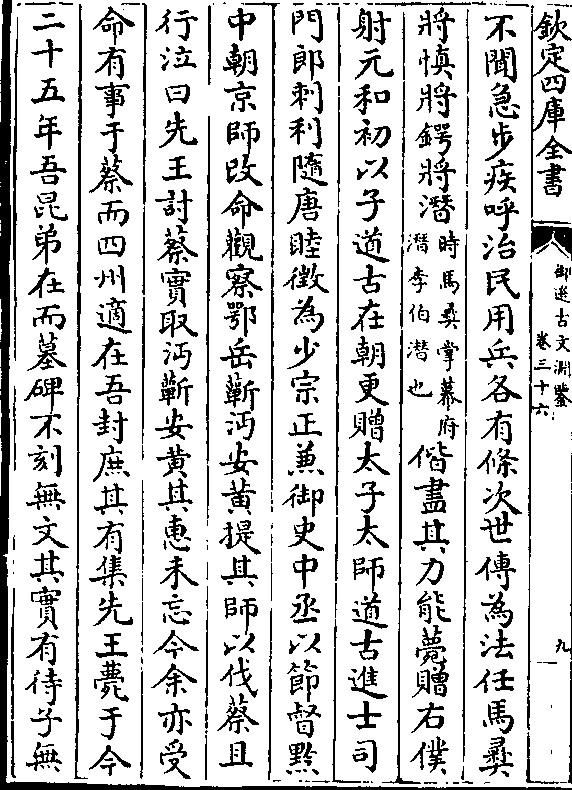 欽定四庫全書
御選古文淵鑒
卷三十六
九
不聞急步疾呼治民用兵各有條次世傳為法任馬彞
將慎將鍔將潛時馬彞掌幕府潛李伯潛也偕盡其力能薨贈右僕
射元和初以子道古在朝更贈太子太師道古進士司
門郎刺利隨唐睦徵為少宗正兼御史中丞以節督黔
中朝京師改命觀察鄂岳蘄沔安黃提其師以伐蔡且
行泣曰先王討蔡實取沔蘄安黃其惠未忘今余亦受
命有事于蔡而四州適在吾封庶其有集先王薨于今
二十五年吾昆弟在而墓碑不刻無文其實有待子無